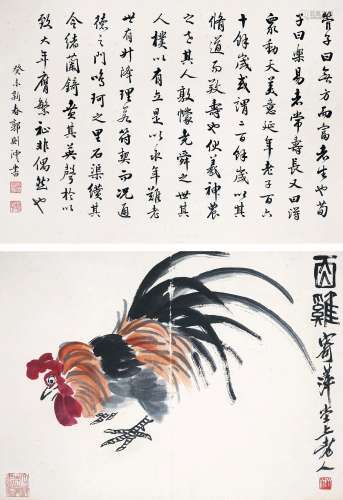 管子曰無方而富者生也荀
子曰樂易者常壽長又曰得
眾動天美意延年老子百六
十餘歲或謂二百餘歲以其
脩道而致壽也伏羲神農
之世其人敦懞堯舜之世其
人樸以有立是以永年難老
世有升降理若符契而況通
德之門鳴珂之里石渠纘其
令緒蘭錡貴其英聲於以
致大年膺繁祉非偶然也
癸未新春郭則澐書
酉雞
寄萍堂上老人